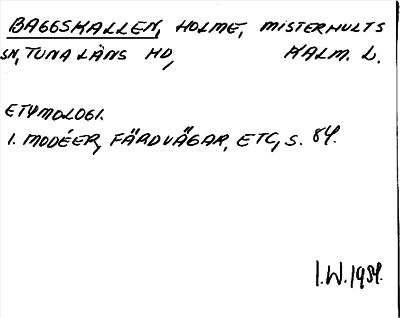 BAGGSKALLEN, HOLME, MISTERHULTS
SN, TUNA LÄNS HD, KALM. L.
ETYMOLOGI.
1. MODÉER, FÄRDVÄGAR, ETC, S. 84.
I.W. 1984.